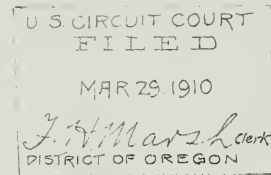 U.S. CIRCUIT COURT
FILED
MAR 29. 1910
F. H. Marsh Clerk
DISTRICT OF OREGON